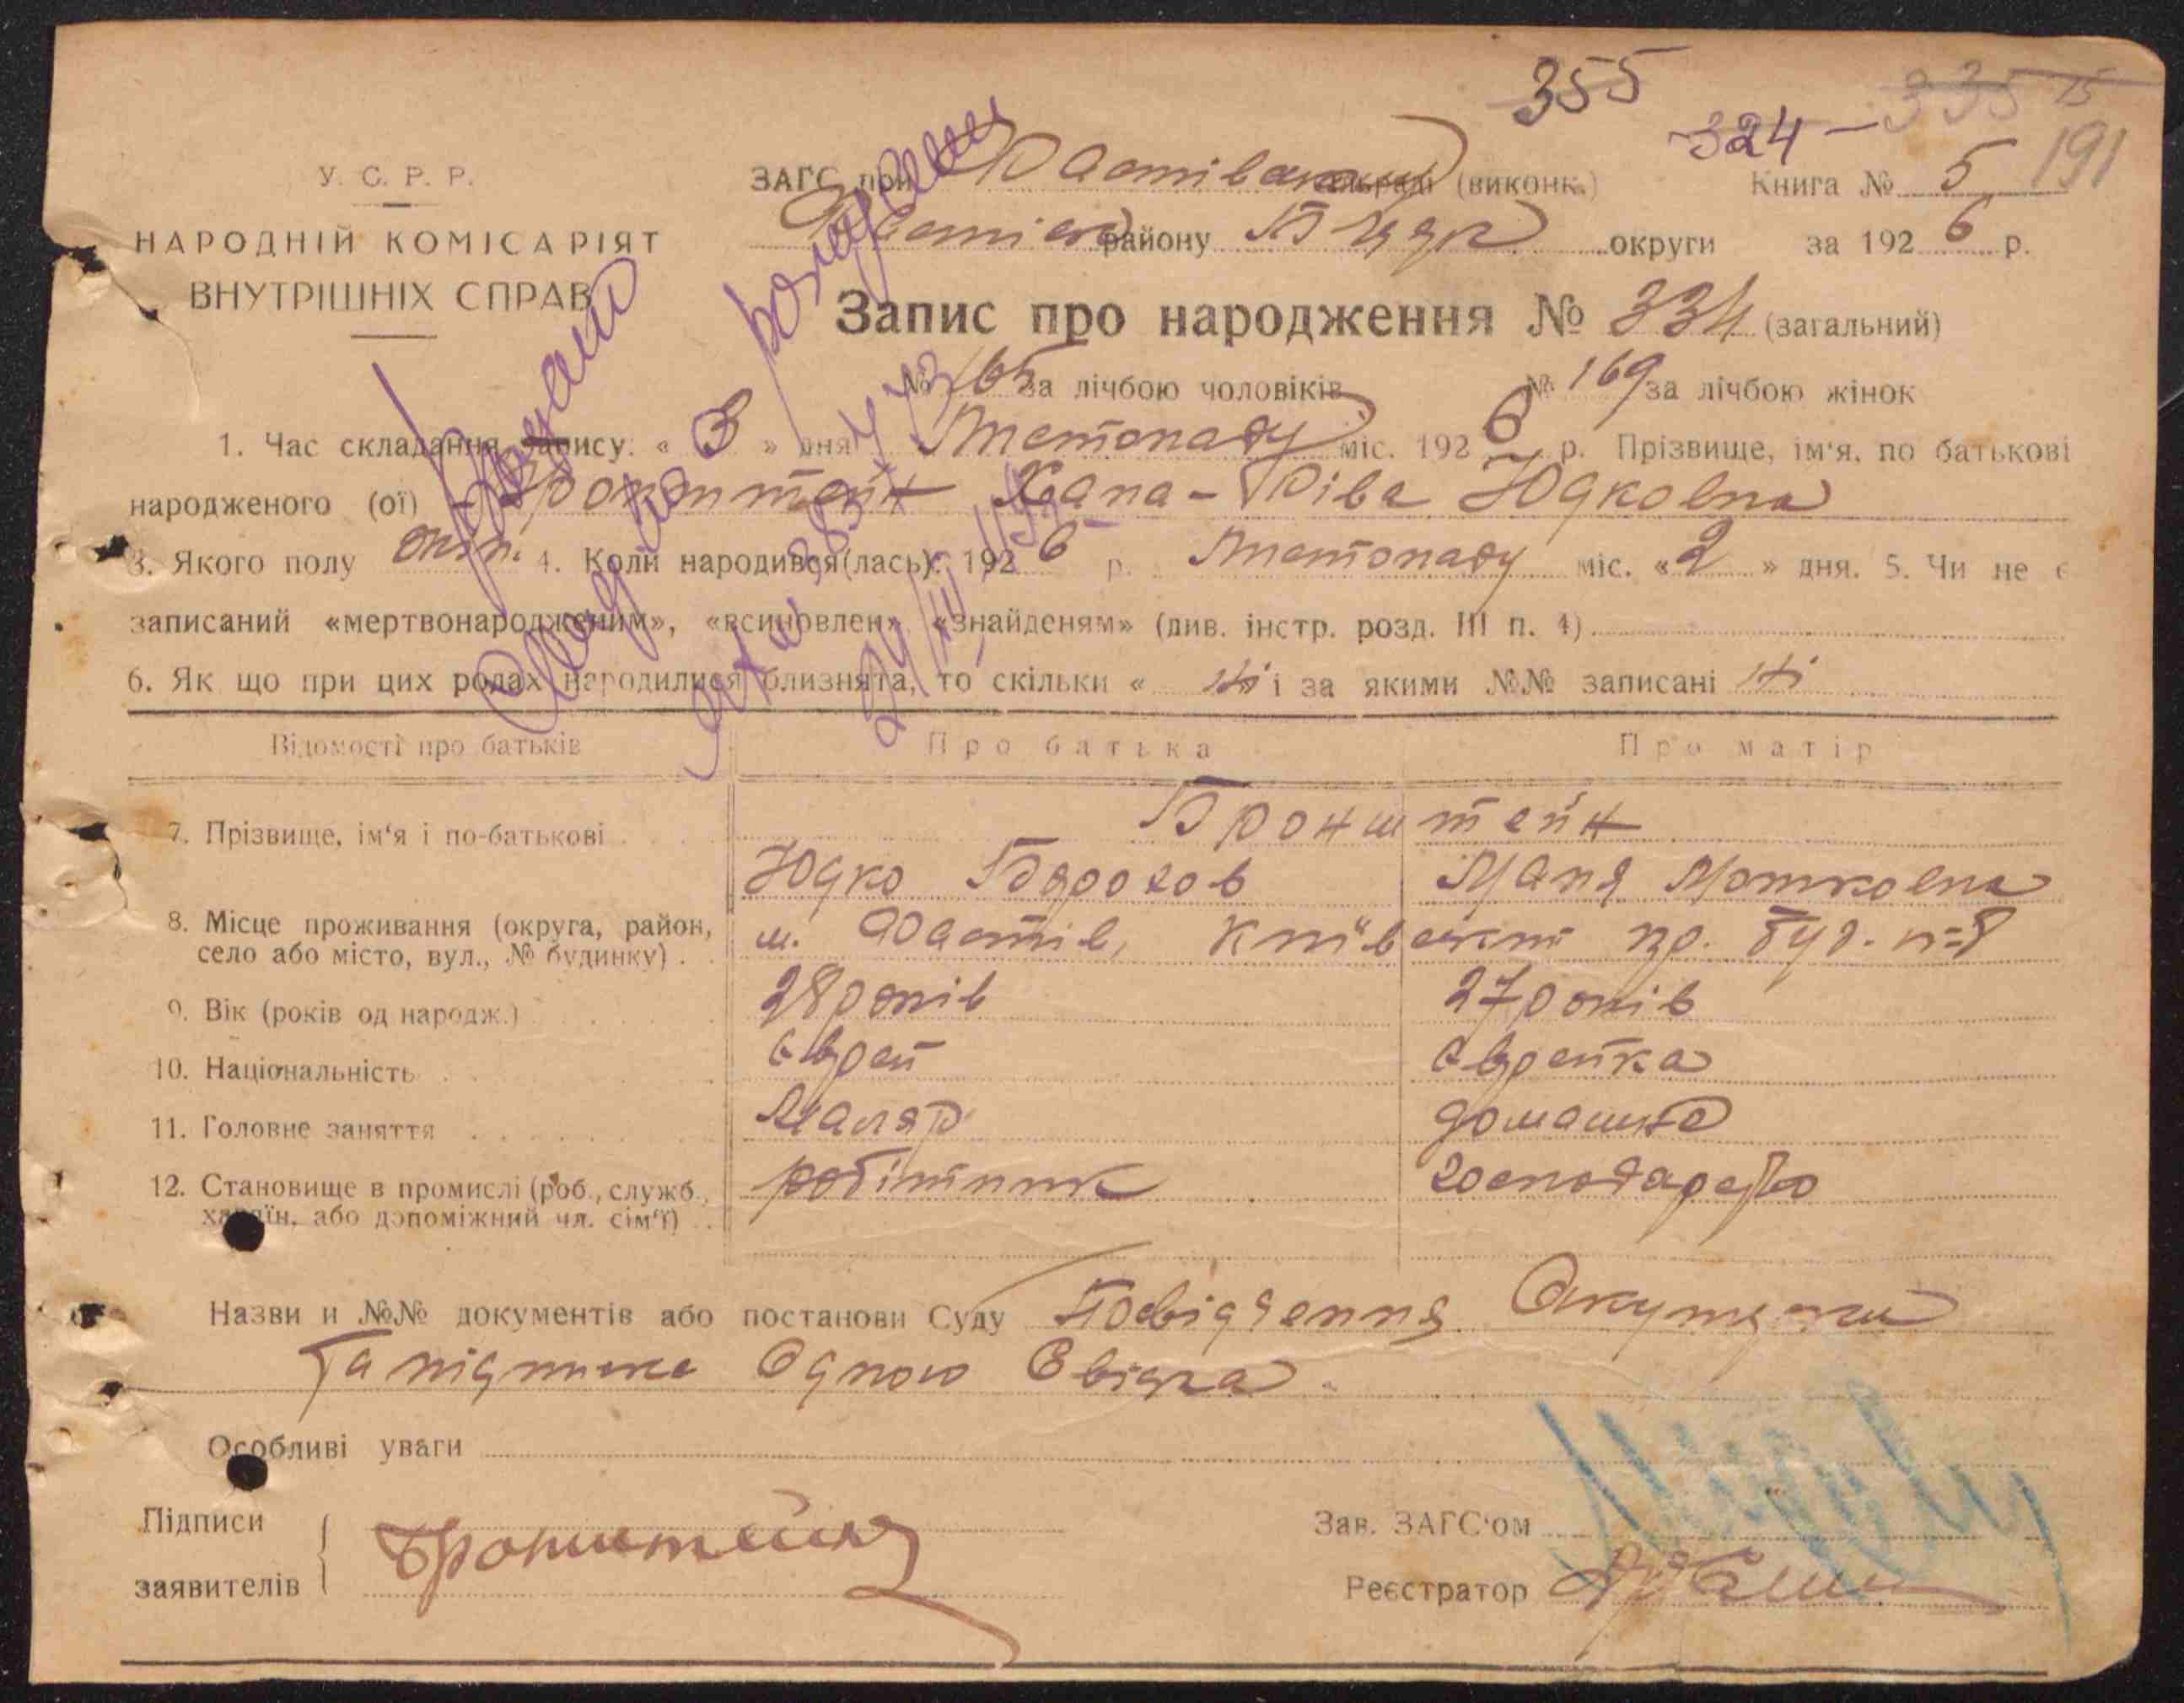 355
324 — 335 15
191
У. С. Р. Р.
НАРОДНІЙ КОМІСАРІЯТ
ВНУТРІШНІХ СПРАВ
ЗАГС при Фастівськ (виконк.) Книга № 5
району округи за 1926 р.
Запис про народження № 334 (загальний)
№ 165 за лічбою чоловіків № 169 за лічбою жінок
1. Час складання запису: « 3 » дня Листопаду міс. 1926 р. Прізвище, ім'я, по батькові
народженого (ої) Бронштейн Хана-Ріва Юдковна
3. Якого полу 4. Коли народився(лась): 1926 р. Листопаду міс. « 2 » дня. 5. Чи не є
записаний «мертвонародженим», «всиновлен» «знайденям» (див. інстр. розд. III п. 4)
6. Як що при цих родах народилися близнята, то скільки « ні і за якими №№ записані ні
Відомості про батьків Про батька Про матір
7. Прізвище, ім'я і по-батькові Бронштейн
Юдко Маня Мошковна
8. Місце проживання (округа, район, село або місто, вул., № будинку) м. Фастів, Київський пр. буд. №8
9. Вік (років од народж.) 28 років 27 років
10. Національність єврей єврейка
11. Головне заняття Маляр домашнє
12. Становище в промислі (роб., служб., хазяїн, або допоміжний чл. сім'ї) робітник господарство
Назви и №№ документів або постанови Суду Посвідчення Акушерки
Та підписка Одного Свідка.
Особливі уваги
Підписи
заявителів Бронштейн
Зав. ЗАГС'ом
Реєстратор